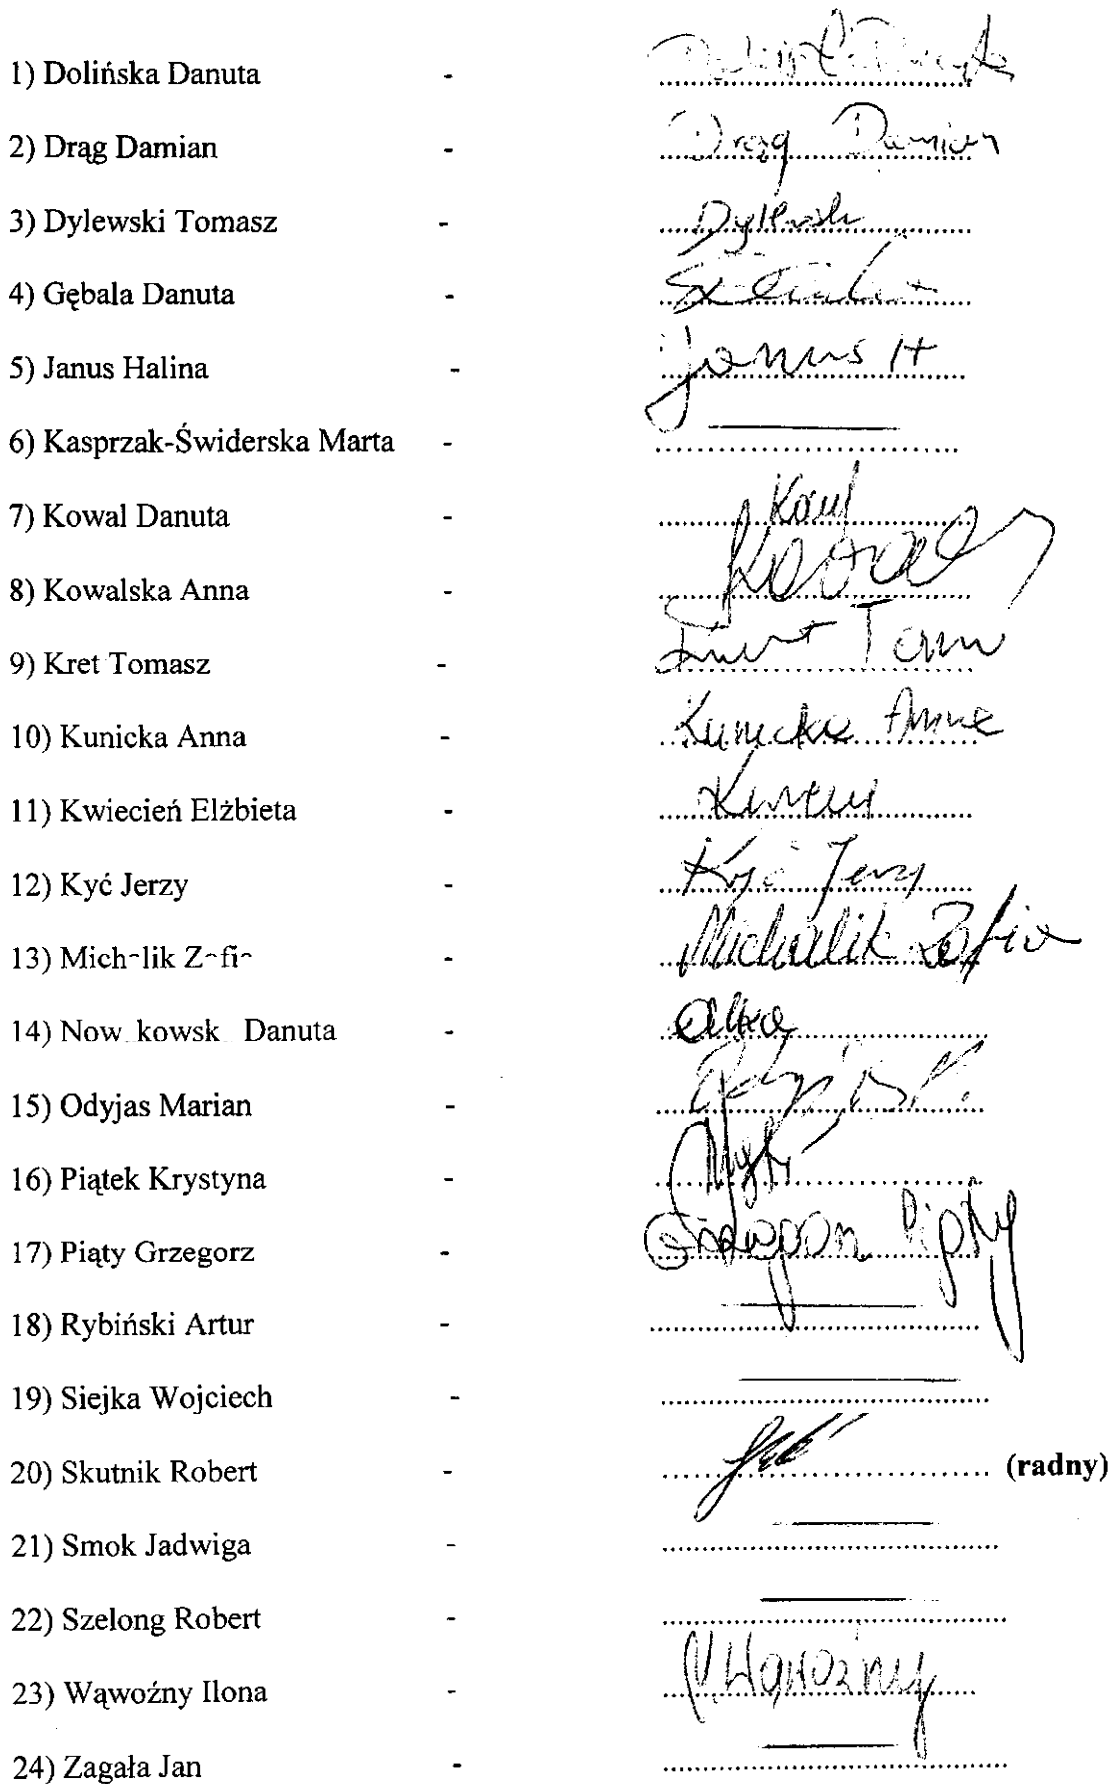 1) Dolińska Danuta -
2) Drąg Damian - Drąg Damian
3) Dylewski Tomasz - Dylewski
4) Gębala Danuta -
5) Janus Halina - Janus H
6) Kasprzak-Świderska Marta -
7) Kowal Danuta -
8) Kowalska Anna -
9) Kret Tomasz -
10) Kunicka Anna - Kunicka Anna
11) Kwiecień Elżbieta -
12) Kyć Jerzy - Kyć Jerzy
13) Mich lik Z fi - Michalik Zofia
14) Now kowsk Danuta -
15) Odyjas Marian -
16) Piątek Krystyna -
17) Piąty Grzegorz - Piąty
18) Rybiński Artur -
19) Siejka Wojciech -
20) Skutnik Robert - (radny)
21) Smok Jadwiga -
22) Szelong Robert -
23) Wąwoźny Ilona - Wąwoźny
24) Zagała Jan -